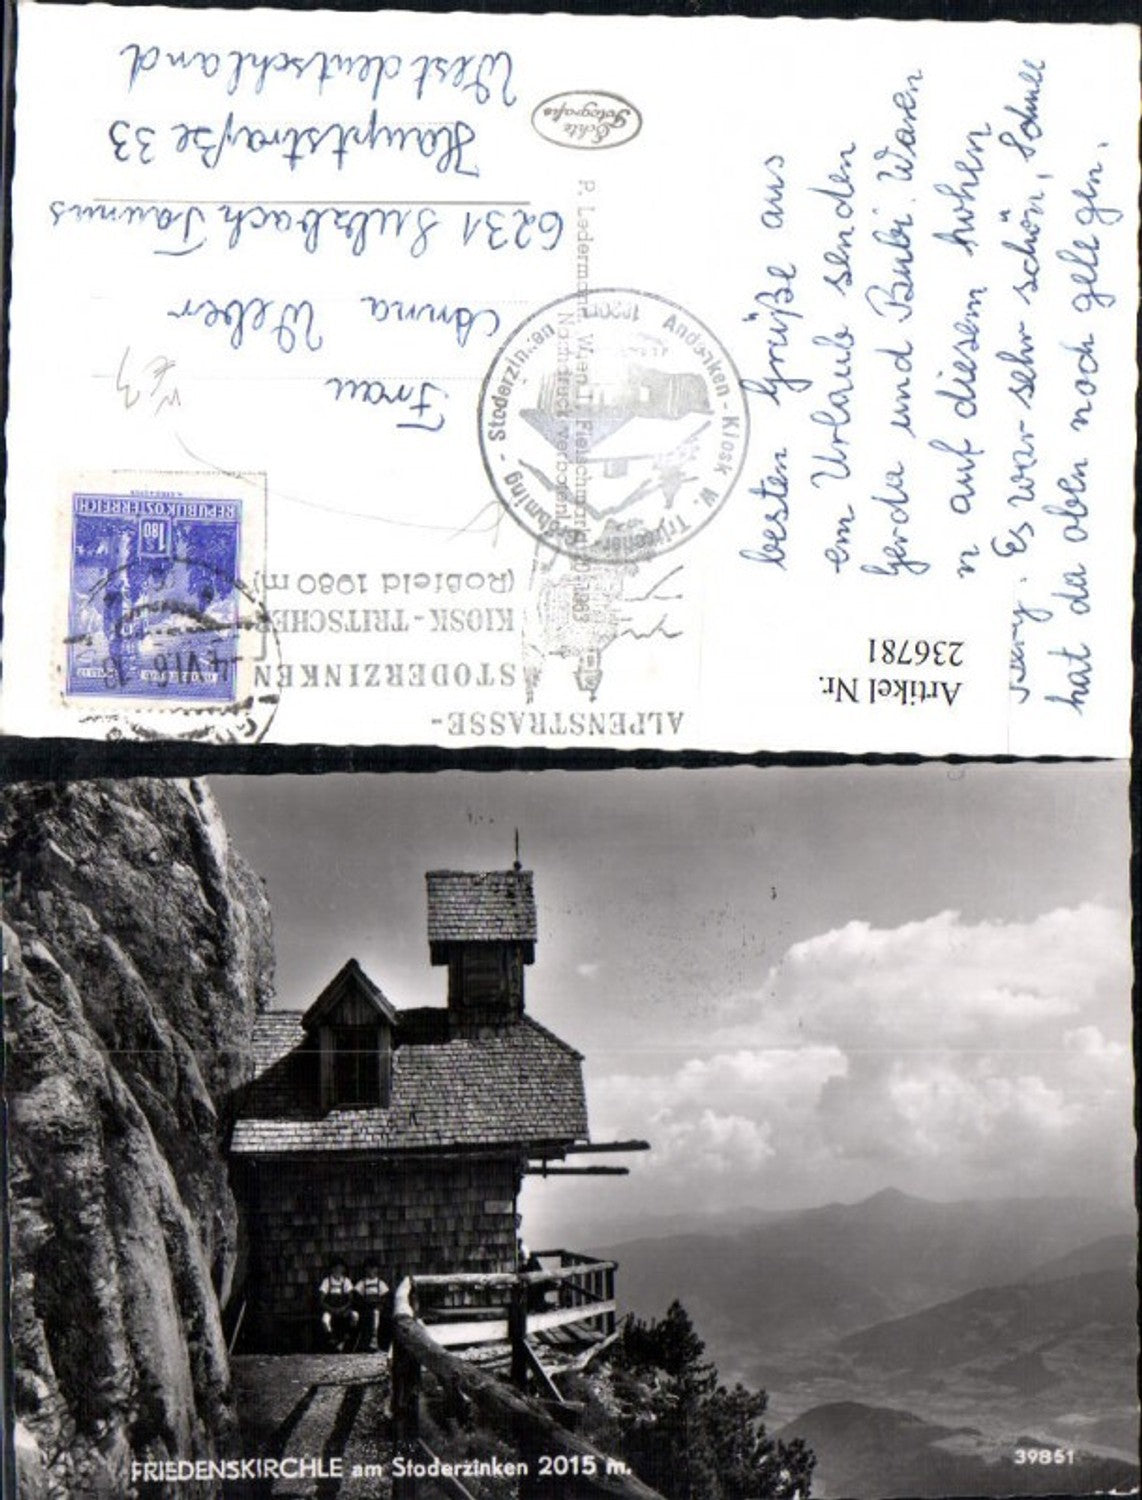 ALPENSTRASSE-
STODERZINKEN
KIOSK-TRITSCHER
(Roßfeld 1980 m)
REPUBLIK ÖSTERREICH
S 1.80
Andenken-Kiosk W. Tritscher
Gröbming - Stoderzinken
Frau
Anna Weber
6231 Sulzbach Taunus
Hauptstraße 33
Westdeutschland
Echte
Fotografie
P. Ledermann, Wien I, Fleischmarkt
Nachdruck verboten!
Artikel Nr.
236781
besten Grüße aus
em Urlaub senden
Gerda und Bubi. Waren
n auf diesem hohen
Es war sehr schön, Schnee
hat da oben noch gelegen.
FRIEDENSKIRCHLE am Stoderzinken 2015 m.
39851